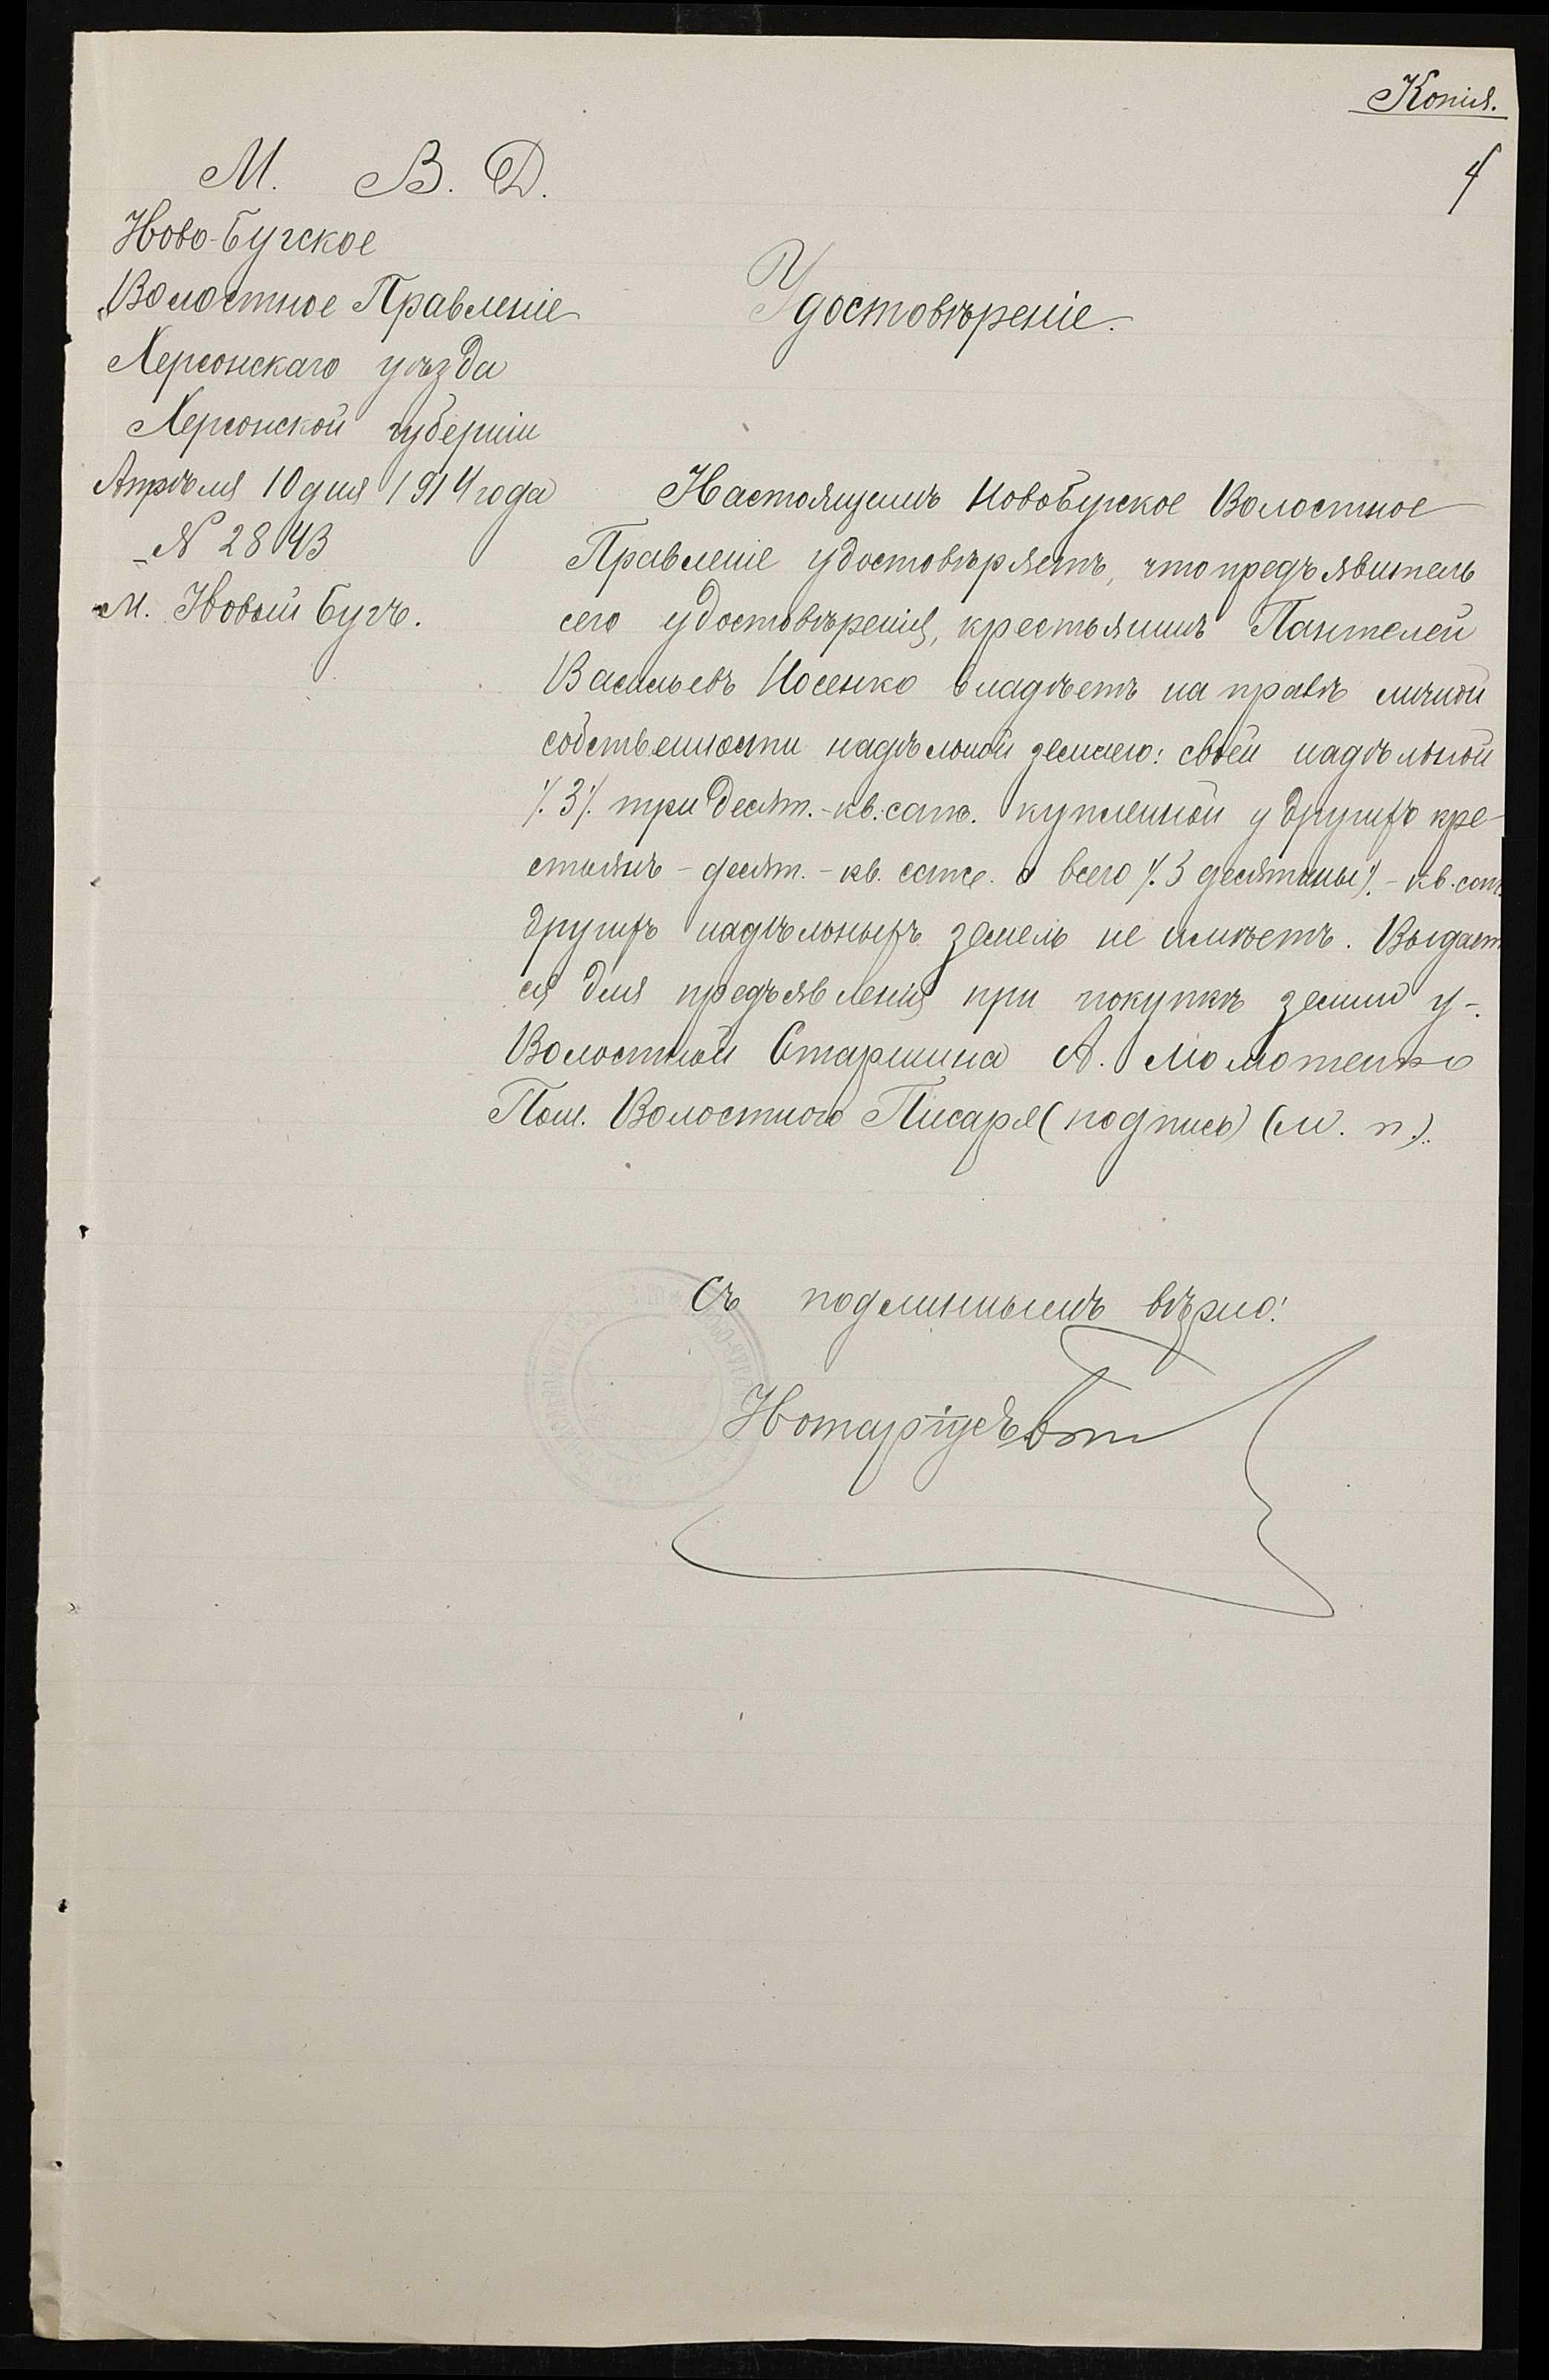 Копія.
4
М. В. Д.
Ново-Бугское
Волостное Правленіе
Херсонскаго уѣзда
Херсонской губерніи
Апрѣля 10 дня 1914 года
№ 2843
м. Новый Бугъ.
Удостовѣреніе.
Настоящимъ Новобугское Волостное
Правленіе удостовѣряетъ, что предъявитель
сего удостовѣренія, крестьянинъ Пантелей
Васильевъ Носенко владѣетъ на правѣ личной
собственности надѣльной землею: своей надѣльной
٪3٪ три десят. - кв. саж. купленной у другихъ кре-
стьянъ - десят. - кв. саж. а всего ٪3 десятины٪ - кв. саж.
другихъ надѣльныхъ земель не имѣетъ. Выдает
ся для предъявленія при покупкѣ земли у -.
Волостной Старшина А.
Пом. Волостного Писаря (подпись) (м. п.).
Съ подлиннымъ вѣрно:
Нотаріусъ